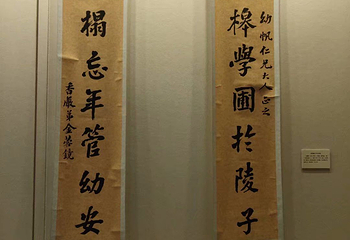 幼帆仁兄大人正之
槔學圃於陵子
榻忘年管幼安
香嚴弟金蓉鏡